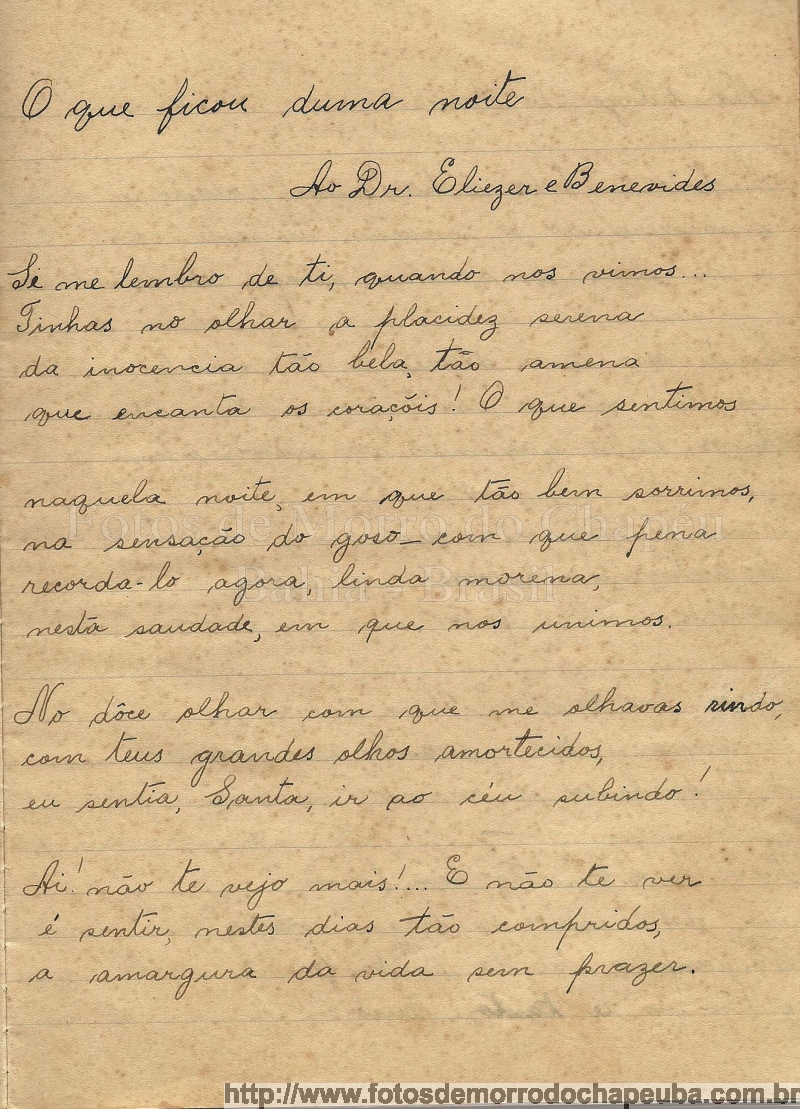 O que ficou duma noite
Ao Dr. Eliezer e Benevides
Se me lembro de ti, quando nos vimos...
Tinhas no olhar a placidez serena
da inocencia tão bela, tão amena
que encanta os coraçõis! O que sentimos
naquela noite, em que tão bem sorrimos,
na sensação do goso_ com que pena
recorda-lo agora, linda morena,
nesta saudade, em que nos unimos.
No dôce olhar com que me olhavas rindo,
com teus grandes olhos amortecidos,
eu sentia, Santa, ir ao céu subindo!
Ai! não te vejo mais!... E não te ver
é sentir, nestes dias tão compridos,
a amargura da vida sem prazer.
Fotos de Morro do Chapéu
Bahia - Brasil
http://www.fotosdemorrodochapeuba.com.br